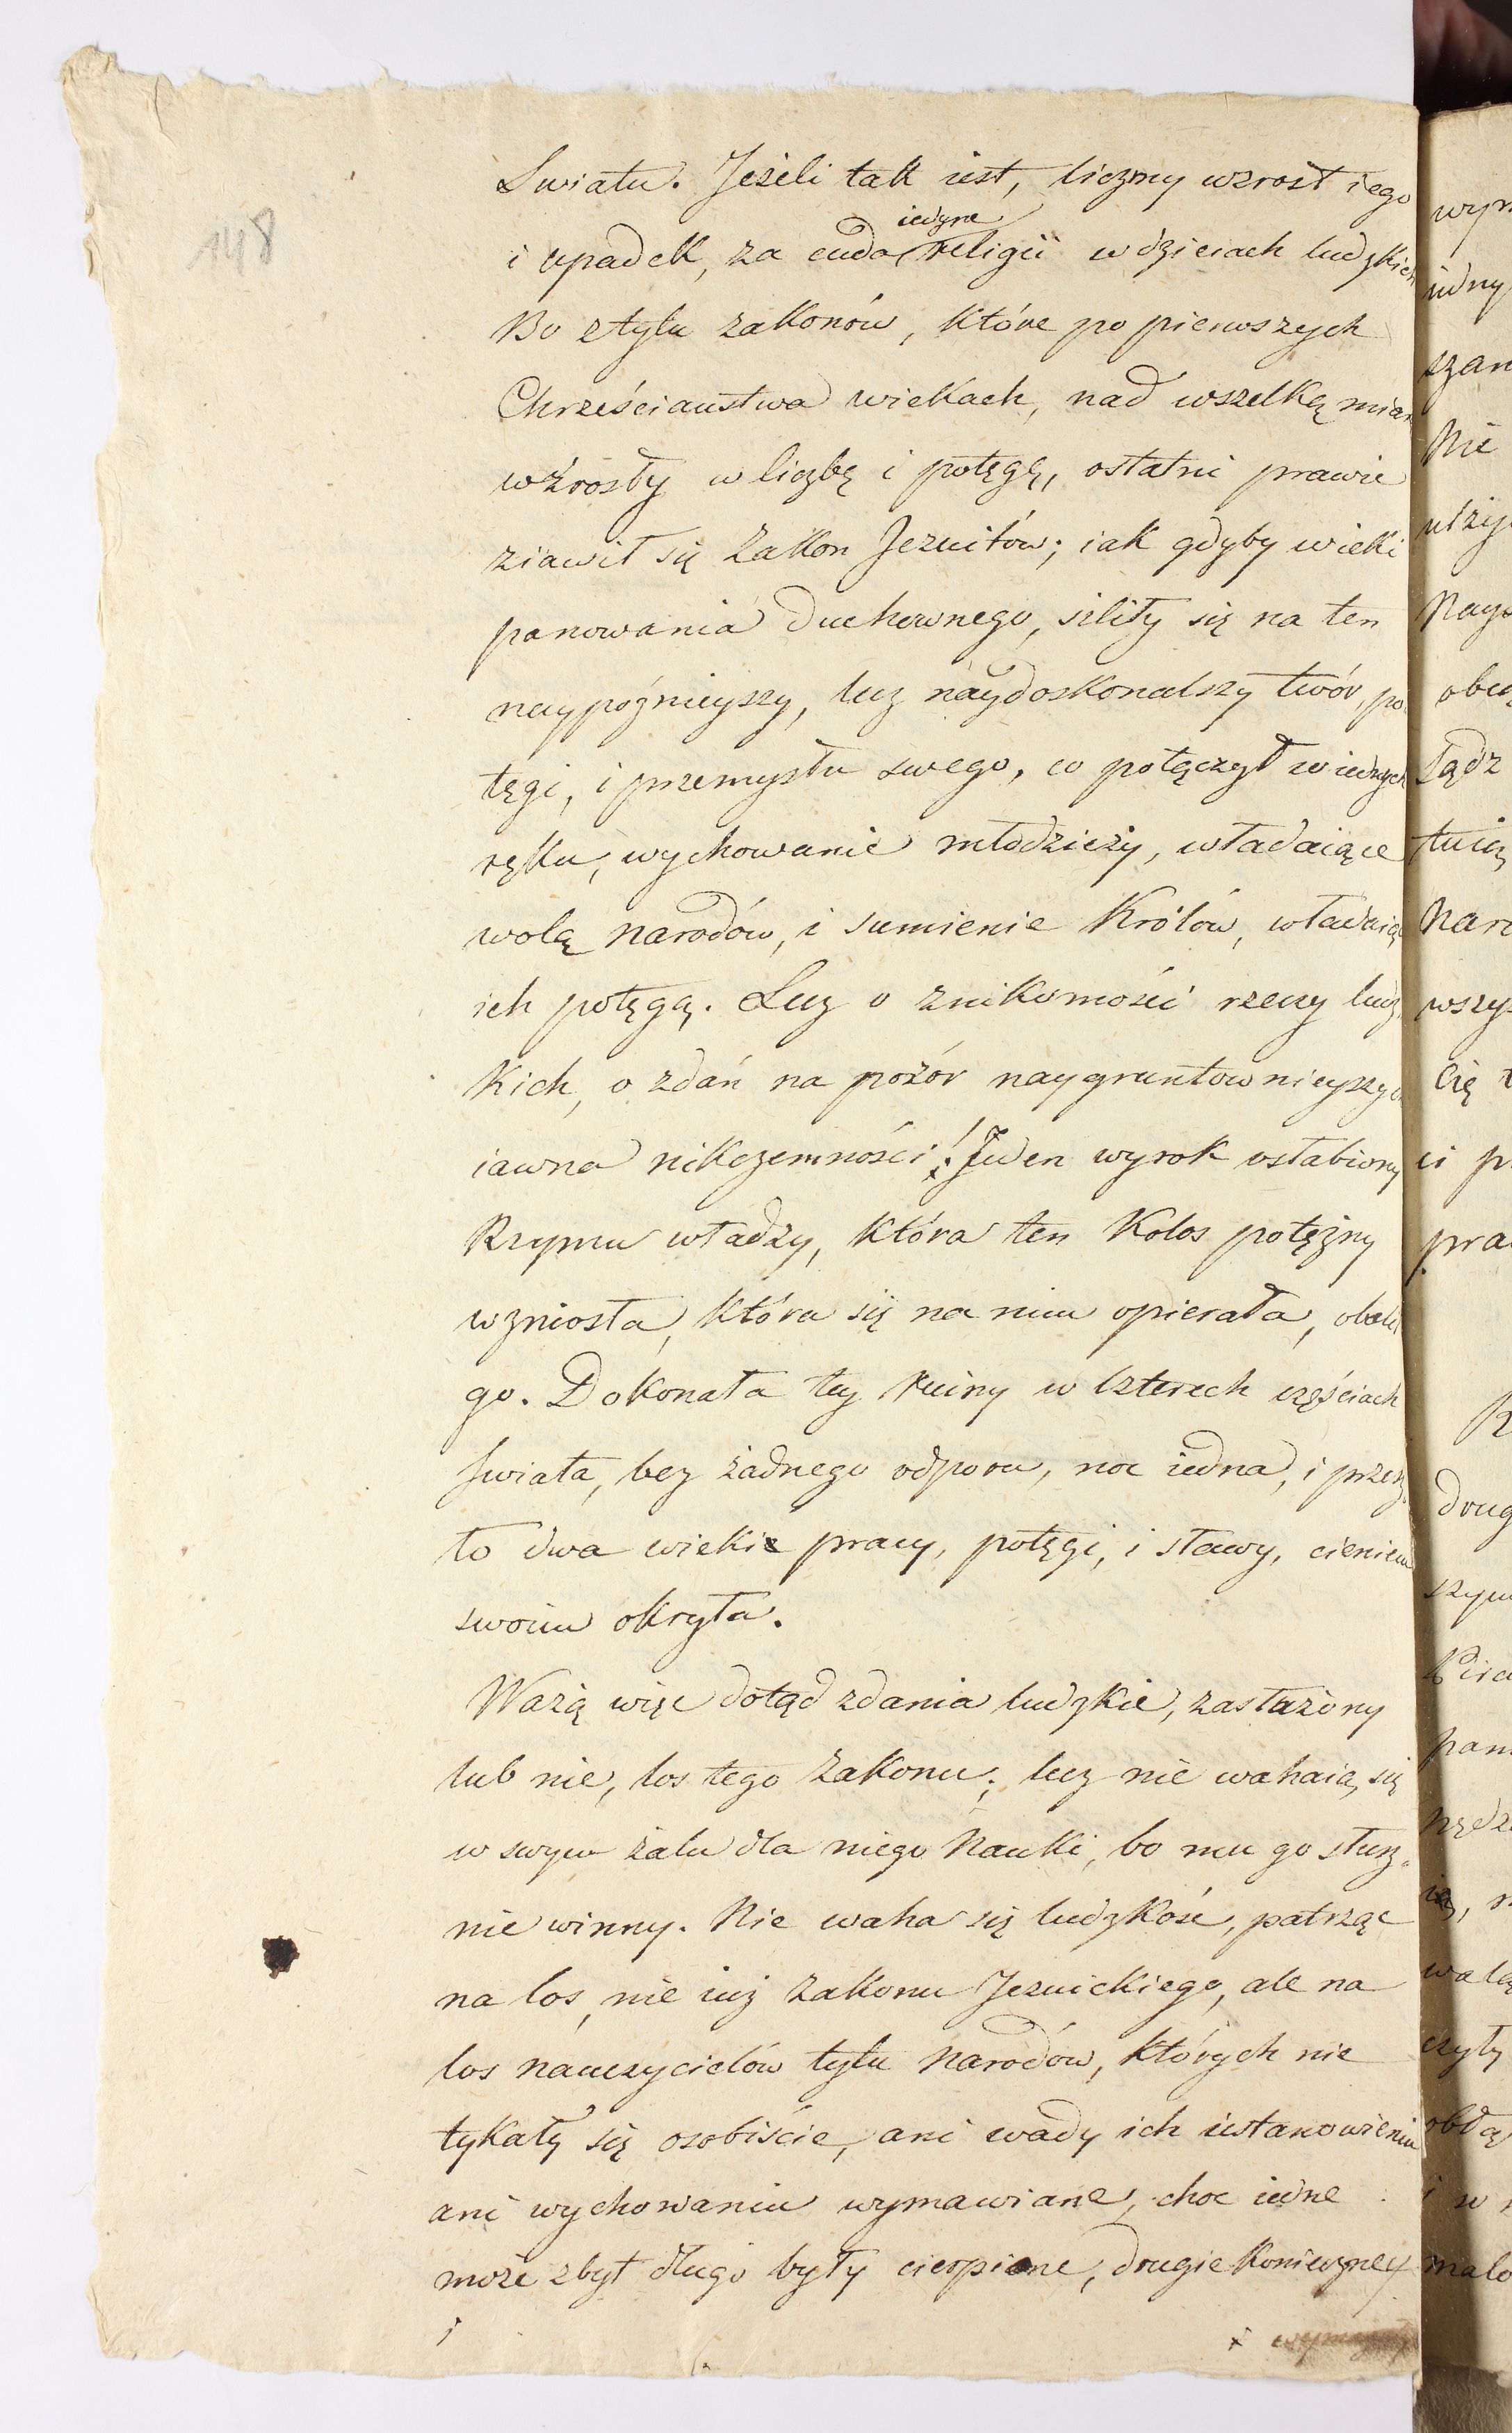 148
Swiatu. Jeżeli tak iest, liczmy wzrost iego
iedyne
i upadek, za cuda religii w dzieiach ludzkich
Bo ztylu zakonów, które po pierwszych
Chrześciaństwa wiekach, nad wszelką miar
wzrosły w liczbę i potęgę, ostatni prawie
ziawił się Zakon Jezuitów; iak gdyby wieki
panowania duchownego, siliły się na ten
naypóźnieyszy, lecz naydoskonalszy twór, po
tęgi, i przemysłu swego, co połączył w iednych
ręku, wychowanie młodzieży, władaiące
wolą narodów, i sumienie Królów, władaiąc
ich potęgą. Lecz o znikomości rzeczy ludz
kich, o zdań na pozór naygruntownieyszych
iawna nikczemności! Jeden wyrok osłabiony
Rzymu władzy, która ten Kolos potężny
wzniosła, która się na nim opierała, obalił
go. Dokonała tey ruiny w czterech częściach
świata, bez żadnego odporu, noc iedna, i przesz
to dwa wieki pracy, potęgi, i sławy, cieniem
swoim okryła.
Ważą więc dotąd zdania ludzkie, zasłużony
lub nie, los tego Zakonu; lecz nie wahaią się
w swym żalu dla niego Nauki, bo mu go słusz
nie winny. Nie waha się ludzkość, patrząc
na los, nie iuż Zakonu Jezuickiego, ale na
los nauczycielów tylu Narodów, których nie
tykały się osobiście, ani wady ich ustanowieniu
ani wychowaniu wymawiane, choc iedne
może zbyt długo były cierpiane, drugie konieczney
i
wyn
iedny
szan
Nie
obcy
sądz
Naro
wszys
cię
ci
pra
drug
pam
nędz
czyły
i w
mało